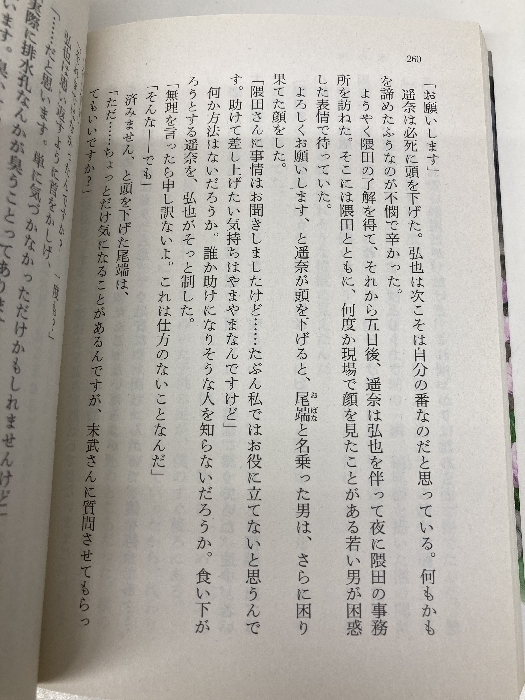 260
「お願いします」
遥奈は必死に頭を下げた。弘也は次こそは自分の番なのだと思っている。何もかも
を諦めたふうなのが不憫で辛かった。
ようやく隈田の了解を得て、それから五日後、遥奈は弘也を伴って夜に隈田の事務
所を訪ねた。そこには隈田とともに、何度か現場で顔を見たことがある若い男が困惑
した表情で待っていた。
よろしくお願いします、と遥奈が頭を下げると、尾端と名乗った男は、さらに困り
おばな
果てた顔をした。
「隈田さんに事情はお聞きしましたけど……たぶん私ではお役に立てないと思うんで
す。助けて差し上げたい気持ちはやまやまなんですけど」
何か方法はないだろうか。誰か助けになりそうな人を知らないだろうか。食い下が
ろうとする遥奈を、弘也がそっと制した。
「無理を言ったら申し訳ないよ。これは仕方のないことなんだ」
「そんな――でも」
済みません、と頭を下げた尾端は、
「ただ……ちょっとだけ気になることがあるんですが、末武さんに質問させてもらっ
てもいいですか？」
思い返すように首をかしげ、
「……だと思います。単に気づかなかっただけかもしれませんけど」
実際に排水孔なんかが臭うことってありま